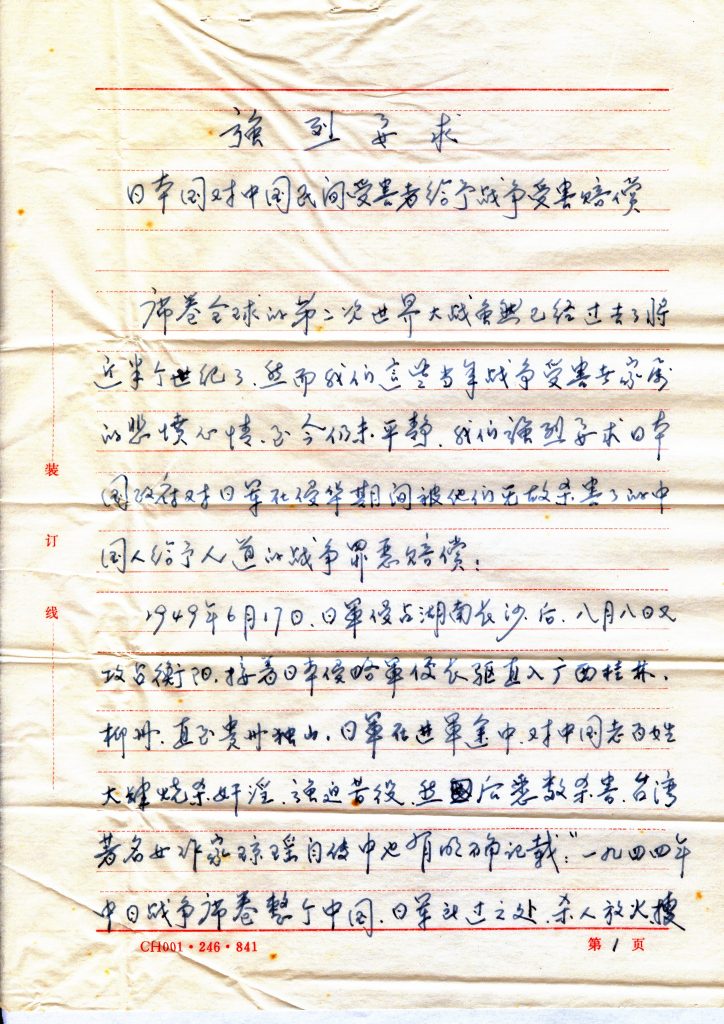 强烈要求
日本国对中国民间受害者给予战争受害赔偿
席卷全球的第二次世界大战虽然已经过去了将
近半个世纪了.然而我们这些当年战争受害者家属
的悲愤心情.至今仍未平静.我们强烈要求日本
国政府对日军在侵华期间被他们无故杀害了的中
国人给予人道的战争罪恶赔偿:
1949年6月17日.日军侵占湖南长沙.后.八月八日又
攻占衡阳.接着日本侵略军便长驱直入广西桂林.
柳州.直至贵州独山.日军在进军途中.对中国老百姓
大肆烧杀奸淫.强迫苦役.然后悉数杀害.台湾
著名女作家琼瑶自传中也有明确记载:"一九四四年
中日战争席卷整个中国.日军所过之处.杀人放火.搜
装
订
线
CH001·246·841
第1页